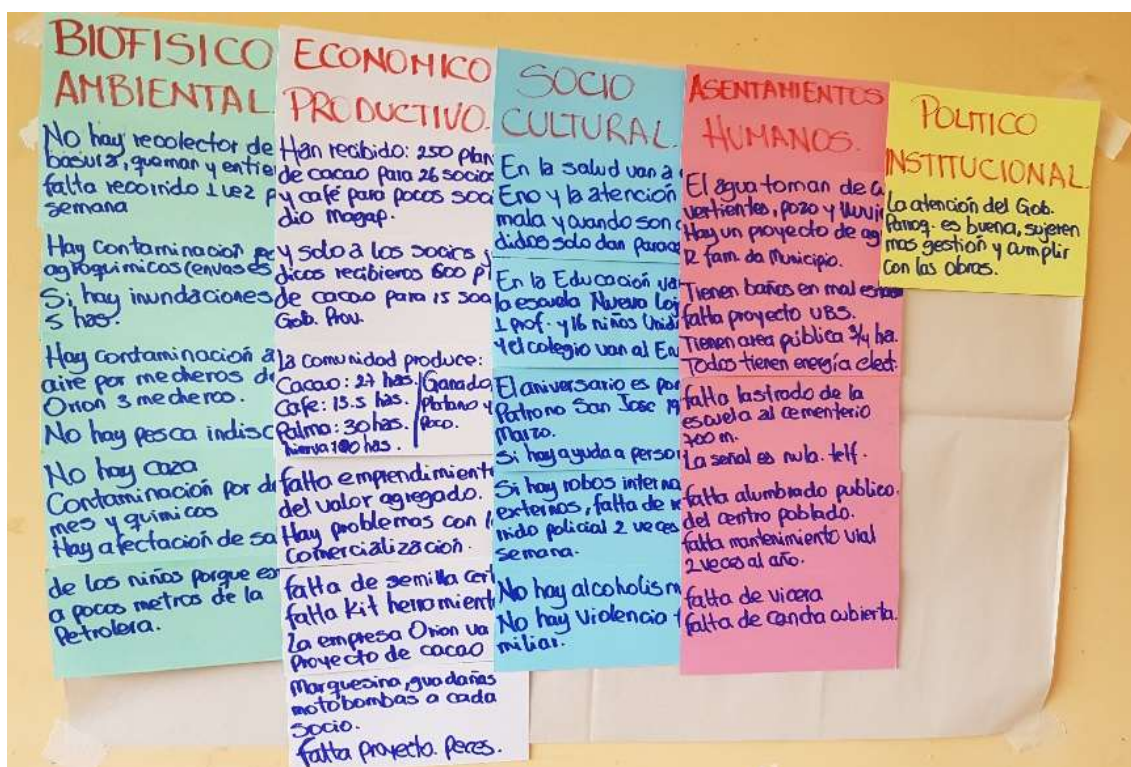 BIOFISICO
AMBIENTAL
No hay recolector de
basura, queman y entie
falta recorrido 1 vez p
semana
Hay contaminacion
agroquimicos (envases
Si hay inundaciones
5 has.
Hay contaminación a
aire por mecheros d
Orion 3 mecheros.
No hay pesca indisc
No hay caza
Contaminación por d
mes y quimicos
Hay afectación de sa
de los niños porque es
a pocos metros de la
Petrolera.
ECONOMICO
PRODUCTIVO.
Han recibido: 250 plan
de cacao para 26 socios
y café para pocos soci
dio magap.
y solo a los socios j
dicos recibieros 600 pl
de cacao para 15 soc
Gob. Prov.
La comunidad produce:
Cacao: 27 has. Ganado
Cafe: 13.5 has. Platano y
Palma: 30 has. Poco.
hierva 100 has.
falta emprendimient
del valor agregado.
Hay problemas con l
comercialización.
falta de semilla cert
falta kit herramient
La empresa Orion va
Proyecto de cacao
Marquesina, guadañas
motobombas a cada
socio.
falta proyecto. Peces.
SOCIO
CULTURAL.
En la salud van a
Eno y la atención
mala y cuando son
didos solo dan parac
En la Educación va
la escuela Nueva Loj
1 Prof. y 16 niños Unid
y el colegio van al En
El aniversario es por
Patrono San Jose 19
Marzo.
Si hay ayuda a person
Si hay robos interno
externos, falta de r
rrido policial 2 veces
semana.
No hay alcoholism
No hay Violencia f
miliar.
ASENTAMIENTOS
HUMANOS.
El agua toman de
vertientes, pozo y lluvi
Hay un proyecto de ag
12 fam. da Municipio.
Tienen baños en mal estado
falta proyecto UBS.
Tienen area pública 3/4 ha.
Todos tienen energía elect.
falta lastrado de la
escuela al cementerio
700 m.
La señal es nula. telf.
falta alumbrado publico.
del centro poblado.
falta mantenimiento vial
2 veces al año.
falta de vicera
falta de cancha cubierta.
POLITICO
INSTITUCIONAL.
La atención del Gob.
Parroq. es buena, sujeren
mas gestión y cumplir
con las obras.